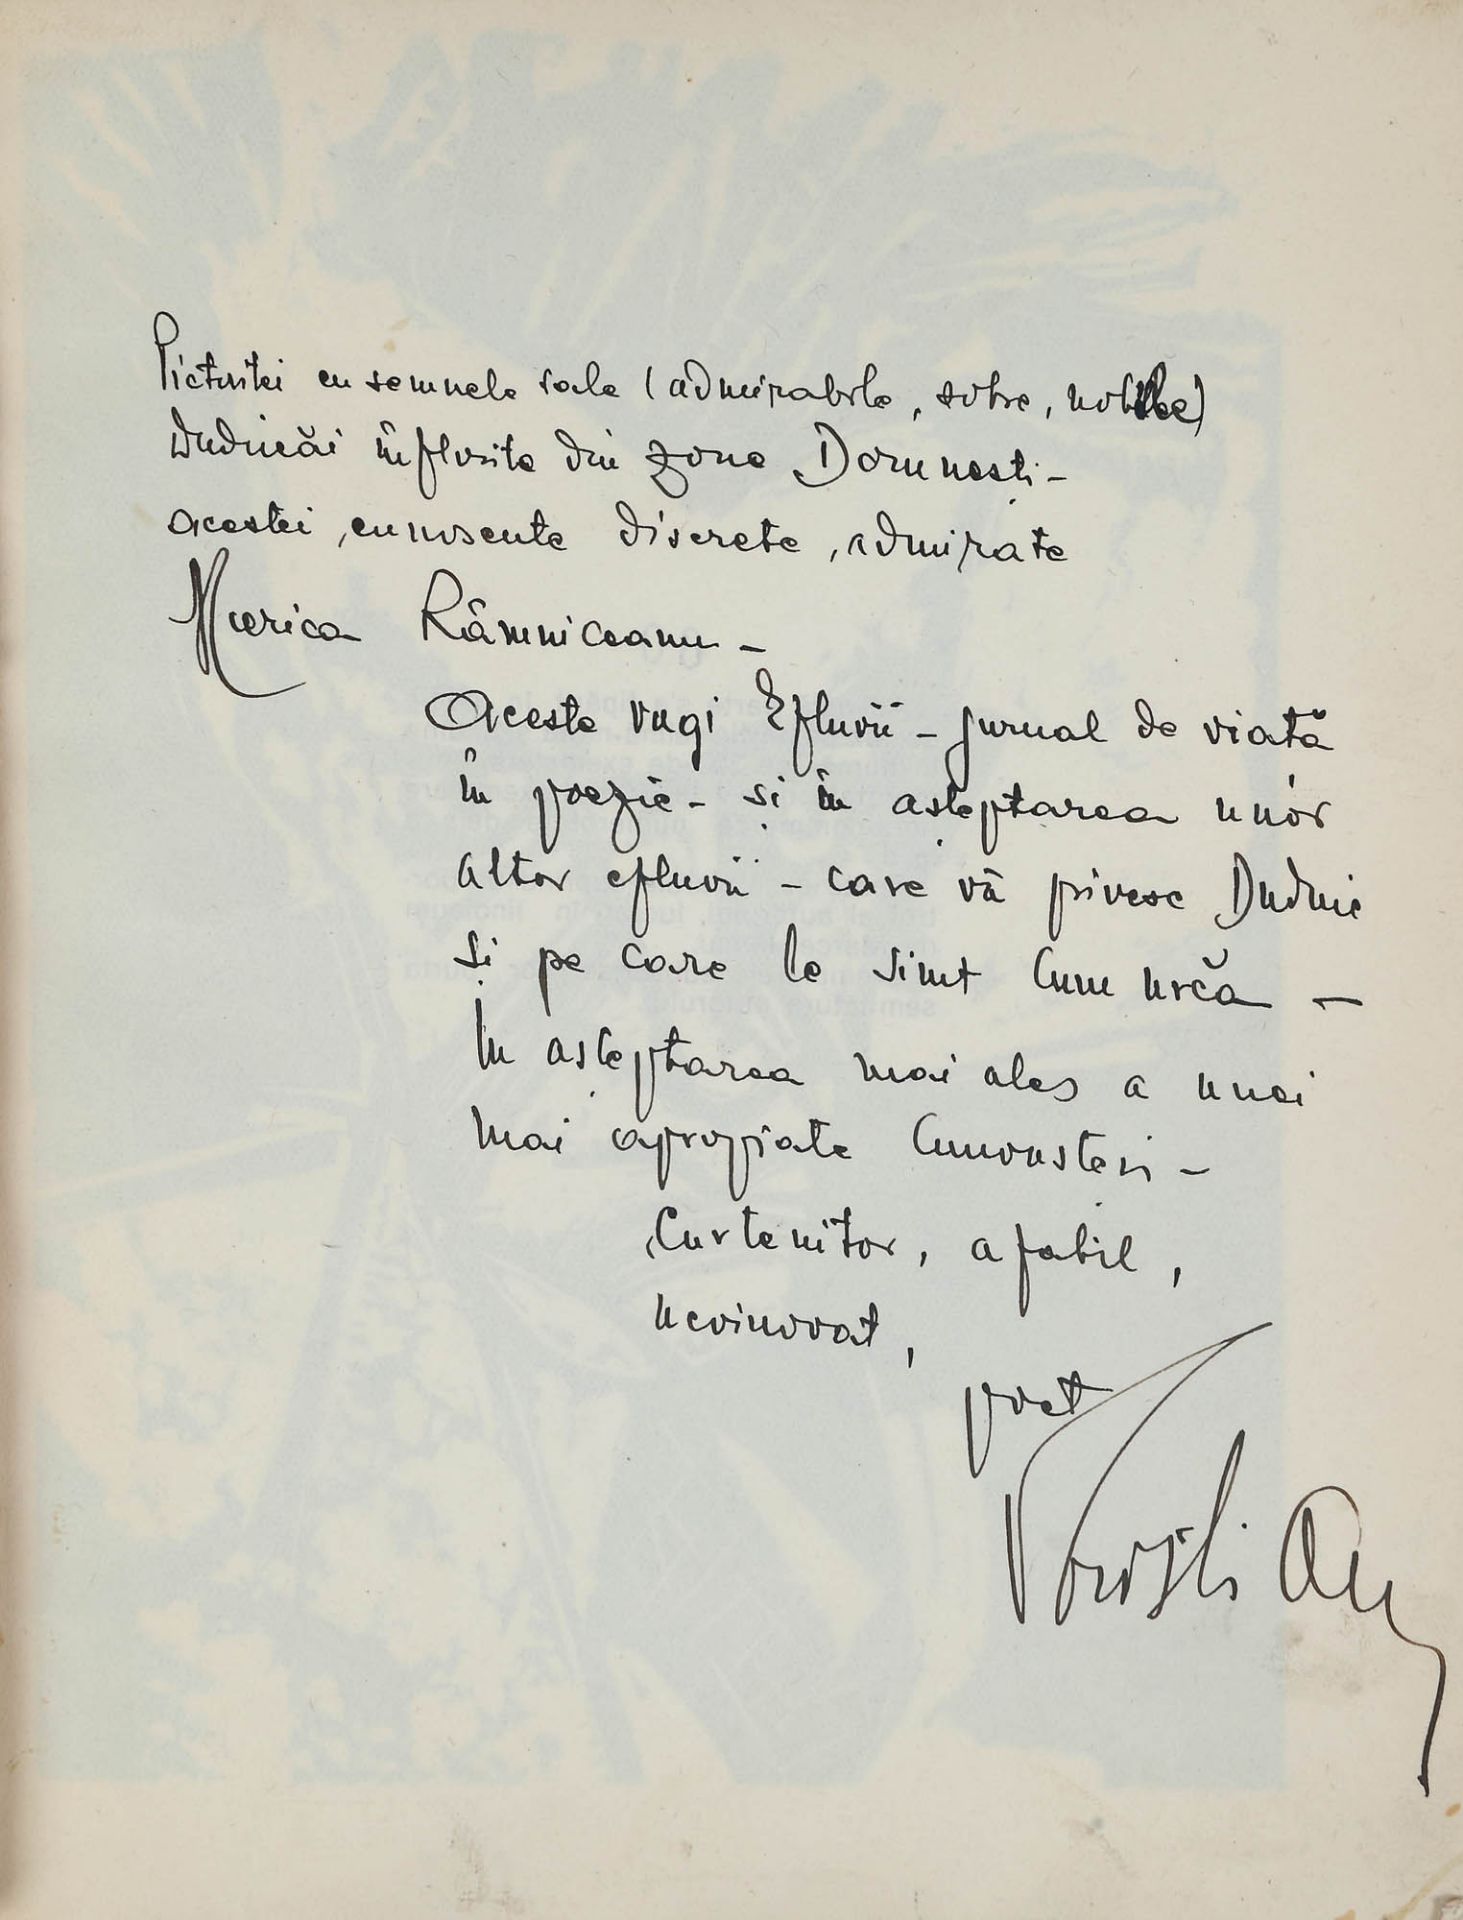 Pictoritei cu semnele sale (admirabile, sobre, nobile)
Duducăi înflorite din zona Domnești –
acestei, cunoscute discrete, admirate
Merica Râmniceanu –
Aceste vagi Efluvii – jurnal de viată
în poezie – și în așteptarea unor
altor efluvii – care vă privesc Duduie
și pe care le simt cum urcă –
în așteptarea mai ales a unei
mai apropiate cunoasteri –
Curtenitor, afabil,
nevinovat,
poet